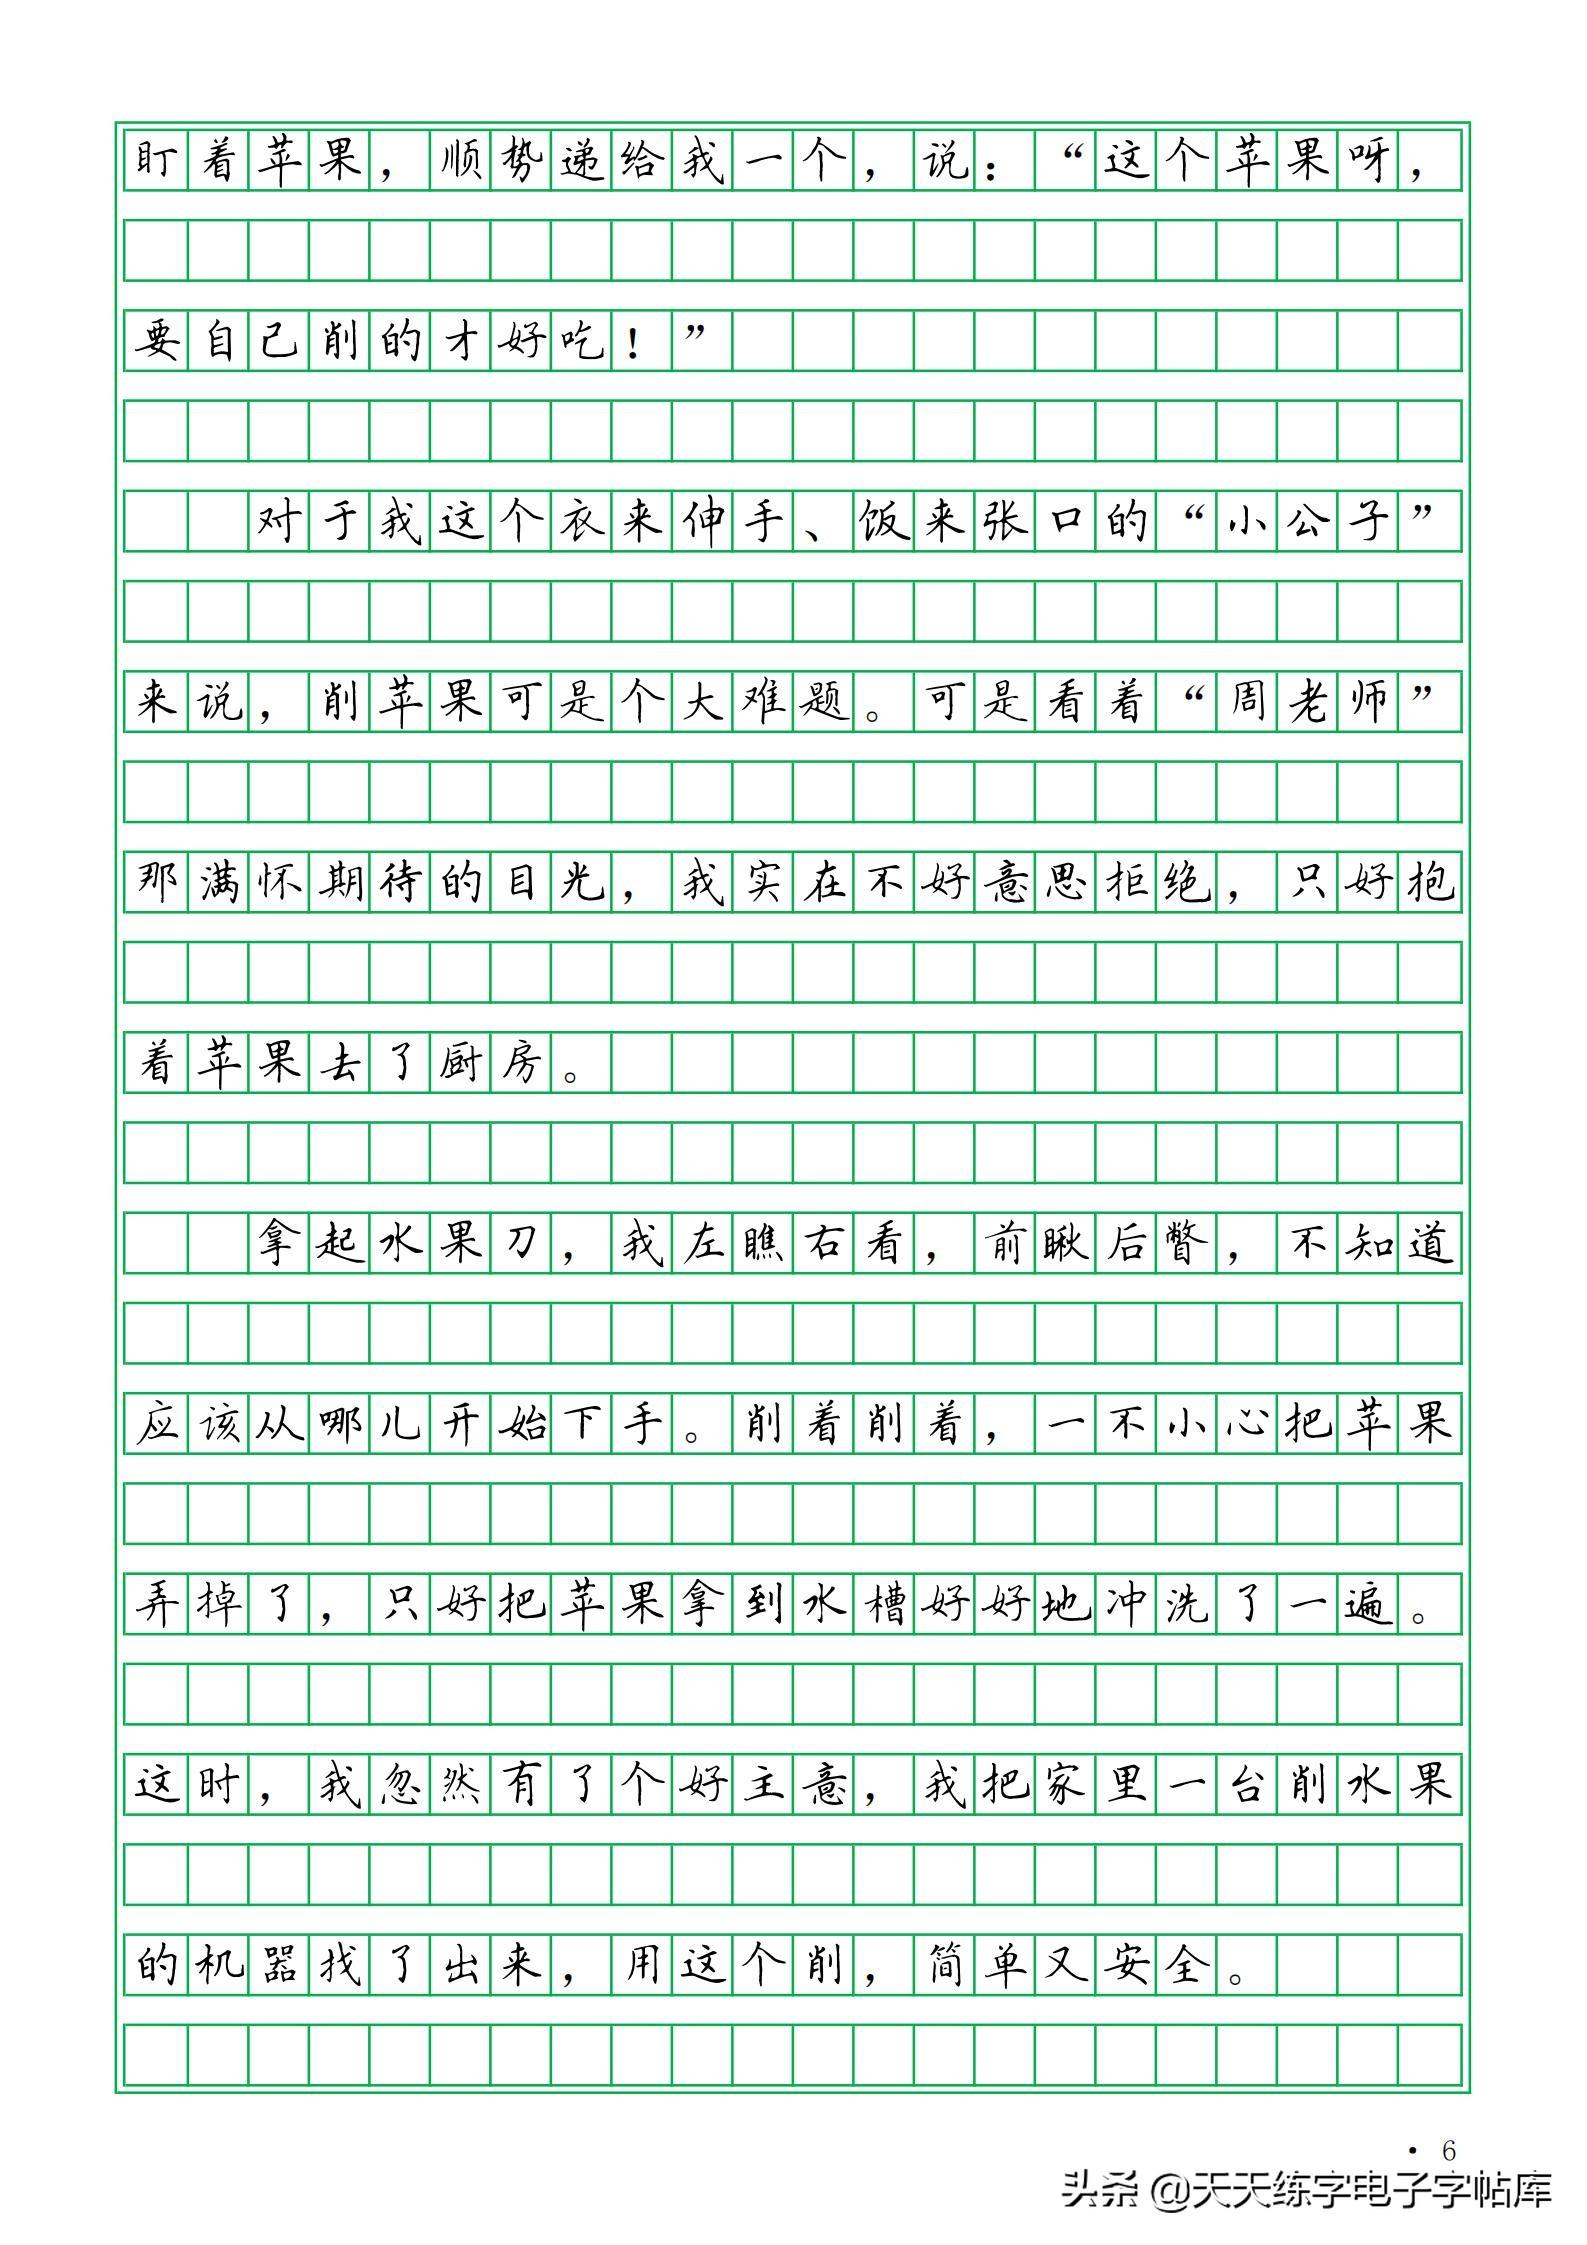 盯着苹果，顺势递给我一个，说：“这个苹果呀，
要自己削的才好吃！”
对于我这个衣来伸手、饭来张口的“小公子”
来说，削苹果可是个大难题。可是看着“周老师”
那满怀期待的目光，我实在不好意思拒绝，只好抱
着苹果去了厨房。
拿起水果刀，我左瞧右看，前瞅后瞥，不知道
应该从哪儿开始下手。削着削着，一不小心把苹果
弄掉了，只好把苹果拿到水槽好好地冲洗了一遍。
这时，我忽然有了个好主意，我把家里一台削水果
的机器找了出来，用这个削，简单又安全。
· 6
头条 @天天练字电子字帖库